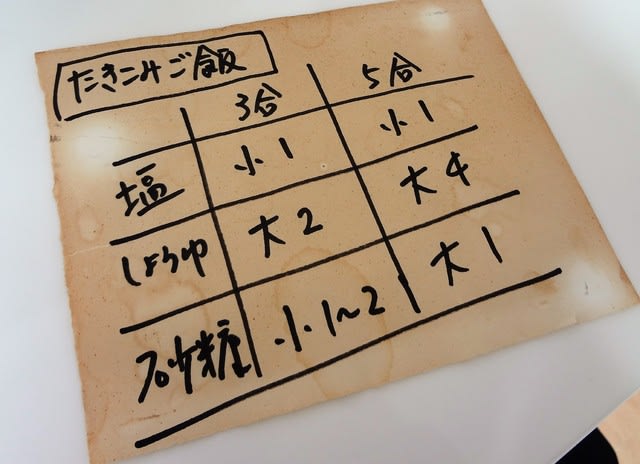 たきこみご飯
3合 5合
塩 小1 小1
しょうゆ 大2 大4
砂糖 小1〜2 大1